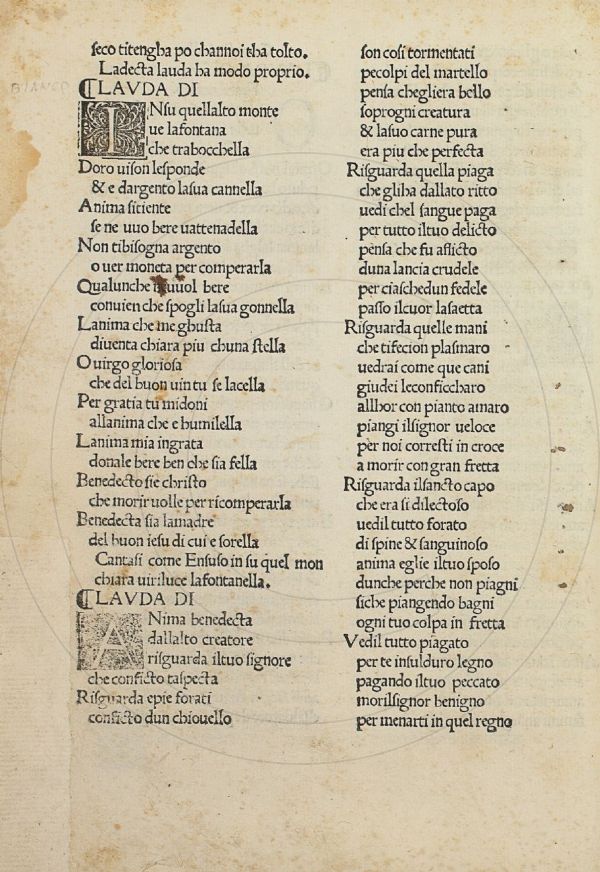 seco titengha po channoi tha tolto.
Ladecta lauda ha modo proprio.
BIANCO
CLAVDA DI
INsu quellalto monte
ue lafontana
che trabocchella
Doro uison lesponde
& e dargento lasua cannella
Anima sitiente
se ne uuo bere uattenadella
Non tibisogna argento
o uer moneta per comperarla
Qualunche uuol bere
conuien che spogli lasua gonnella
Lanima che me ghusta
diuenta chiara piu chuna stella
O uirgo gloriosa
che del buon uin tu se lacella
Per gratia tu midoni
allanima che e humilella
Lanima mia ingrata
donale bere ben che sia fella
Benedecto sie christo
che morir uolle per ricomperarla
Benedecta sia lamadre
del buon iesu di cui e sorella
Cantasi come Ensuso in su quel mon
chiara uiriluce lafontanella.
CLAVDA DI
ANima benedecta
dallalto creatore
risguarda iltuo signore
che conficto taspecta
Risguarda epie forati
conficto dun chiouello
son cosi tormentati
pecolpi del martello
pensa chegliera bello
soprogni creatura
& lasuo carne pura
era piu che perfecta
Risguarda quella piaga
che gliha dallato ritto
uedi chel sangue paga
per tutto iltuo delicto
pensa che fu aflicto
duna lancia crudele
per ciaschedun fedele
passo ilcuor lasaetta
Risguarda quelle mani
che tifecion plasmaro
uedrai come que cani
giudei leconficcharo
allhor con pianto amaro
piangi ilsignor ueloce
per noi corresti in croce
a morir con gran fretta
Risguarda ilsancto capo
che era si dilectoso
uedil tutto forato
di spine & sanguinoso
anima eglie iltuo sposo
dunche perche non piagni
siche piangendo bagni
ogni tuo colpa in fretta
Vedil tutto piagato
per te insulduro legno
pagando iltuo peccato
morilsignor benigno
per menarti in quel regno